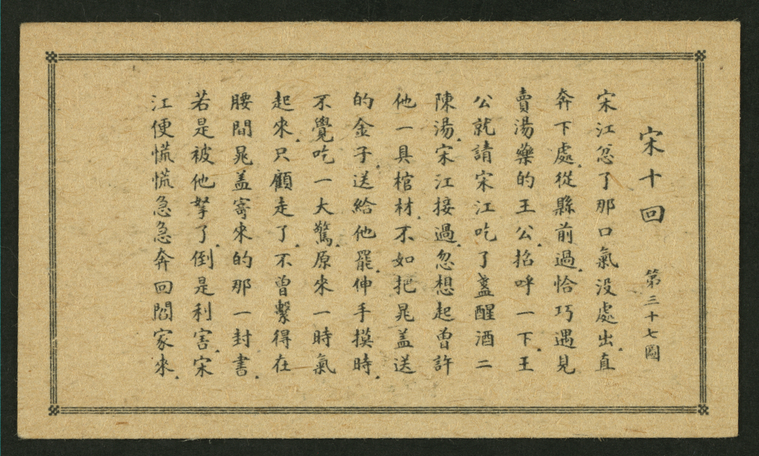 宋十回
第三十七圖
宋江忍了那口氣没處出.直
奔下處.從縣前過恰巧遇見
賣湯藥的王公.招呼一下.王
公就請宋江吃了盞醒酒二
陳湯.宋江接過.忽想起曾許
他一具棺材.不如把晁盖送
的金子.送給他罷.伸手摸時.
不覺吃一大驚.原來一時氣
起來.只顧走了.不曾繫得在
腰間晁盖寄來的那一封書.
若是被他拏了.倒是利害.宋
江便慌慌急急奔回閻家來.